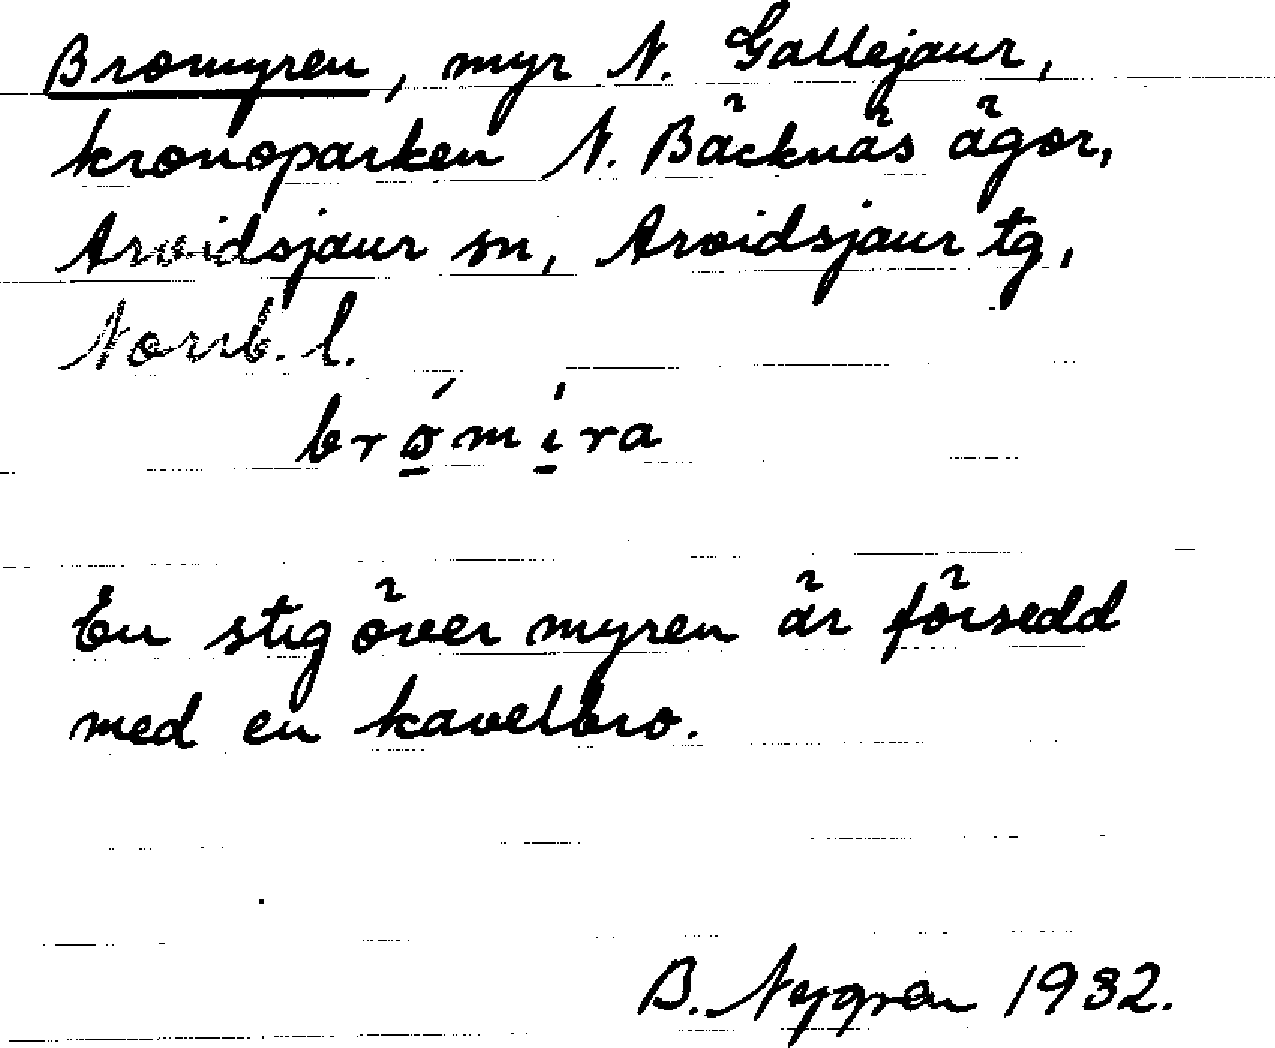 Bromyren, myr N. Gallejaur,
kronoparken N. Bäcknäs ägor,
Arvidsjaur sn, Arvidsjaur tg,
Norrb. l.
brǿ̱mí̱ra
En stig över myren är försedd
med en kavelbro.
B. Nygren 1932.